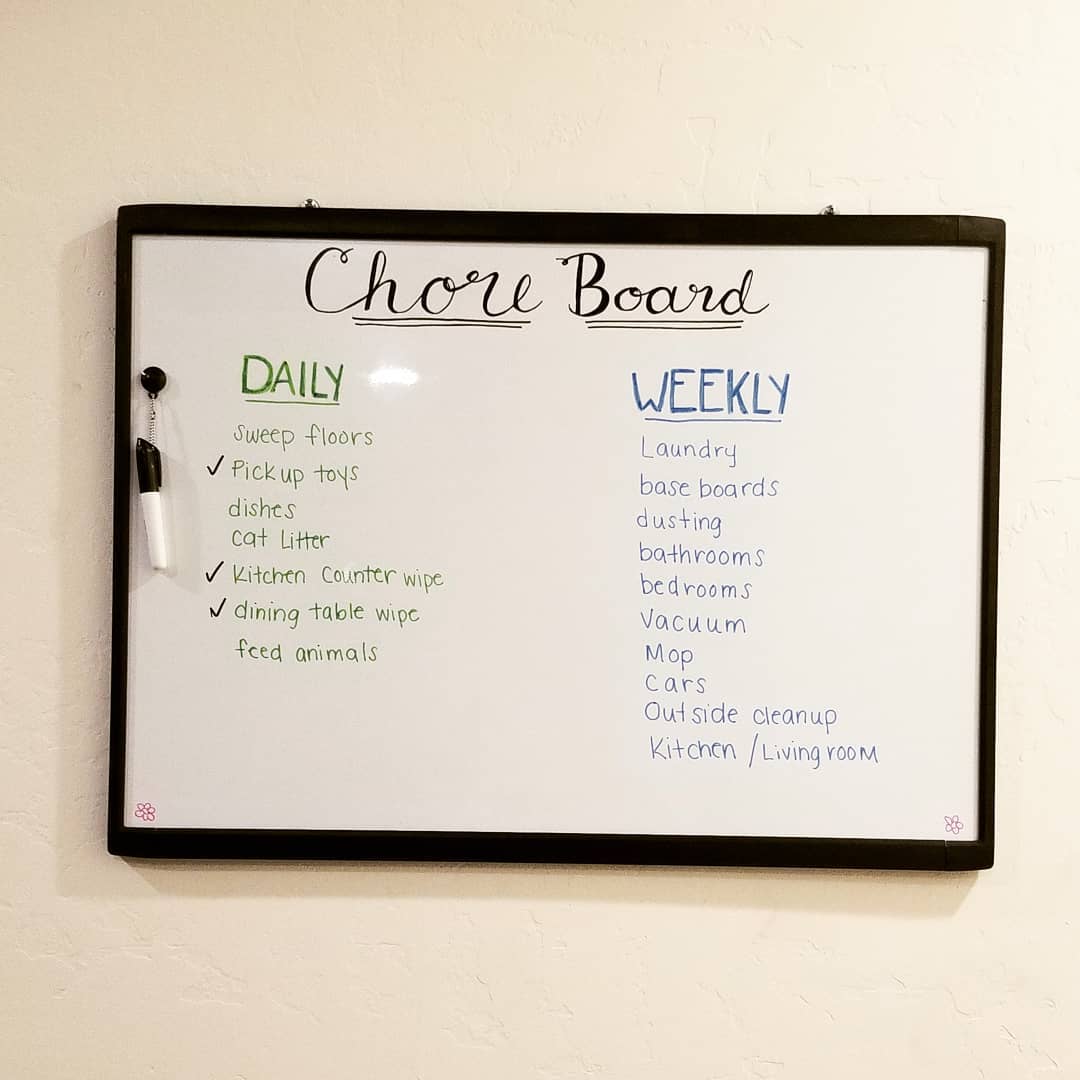 Chore Board
DAILY
sweep floors
✓ Pickup toys
dishes
cat Litter
✓ Kitchen Counter wipe
✓ dining table wipe
feed animals
WEEKLY
Laundry
base boards
dusting
bathrooms
bedrooms
Vacuum
Mop
Cars
Outside cleanup
Kitchen / Living room